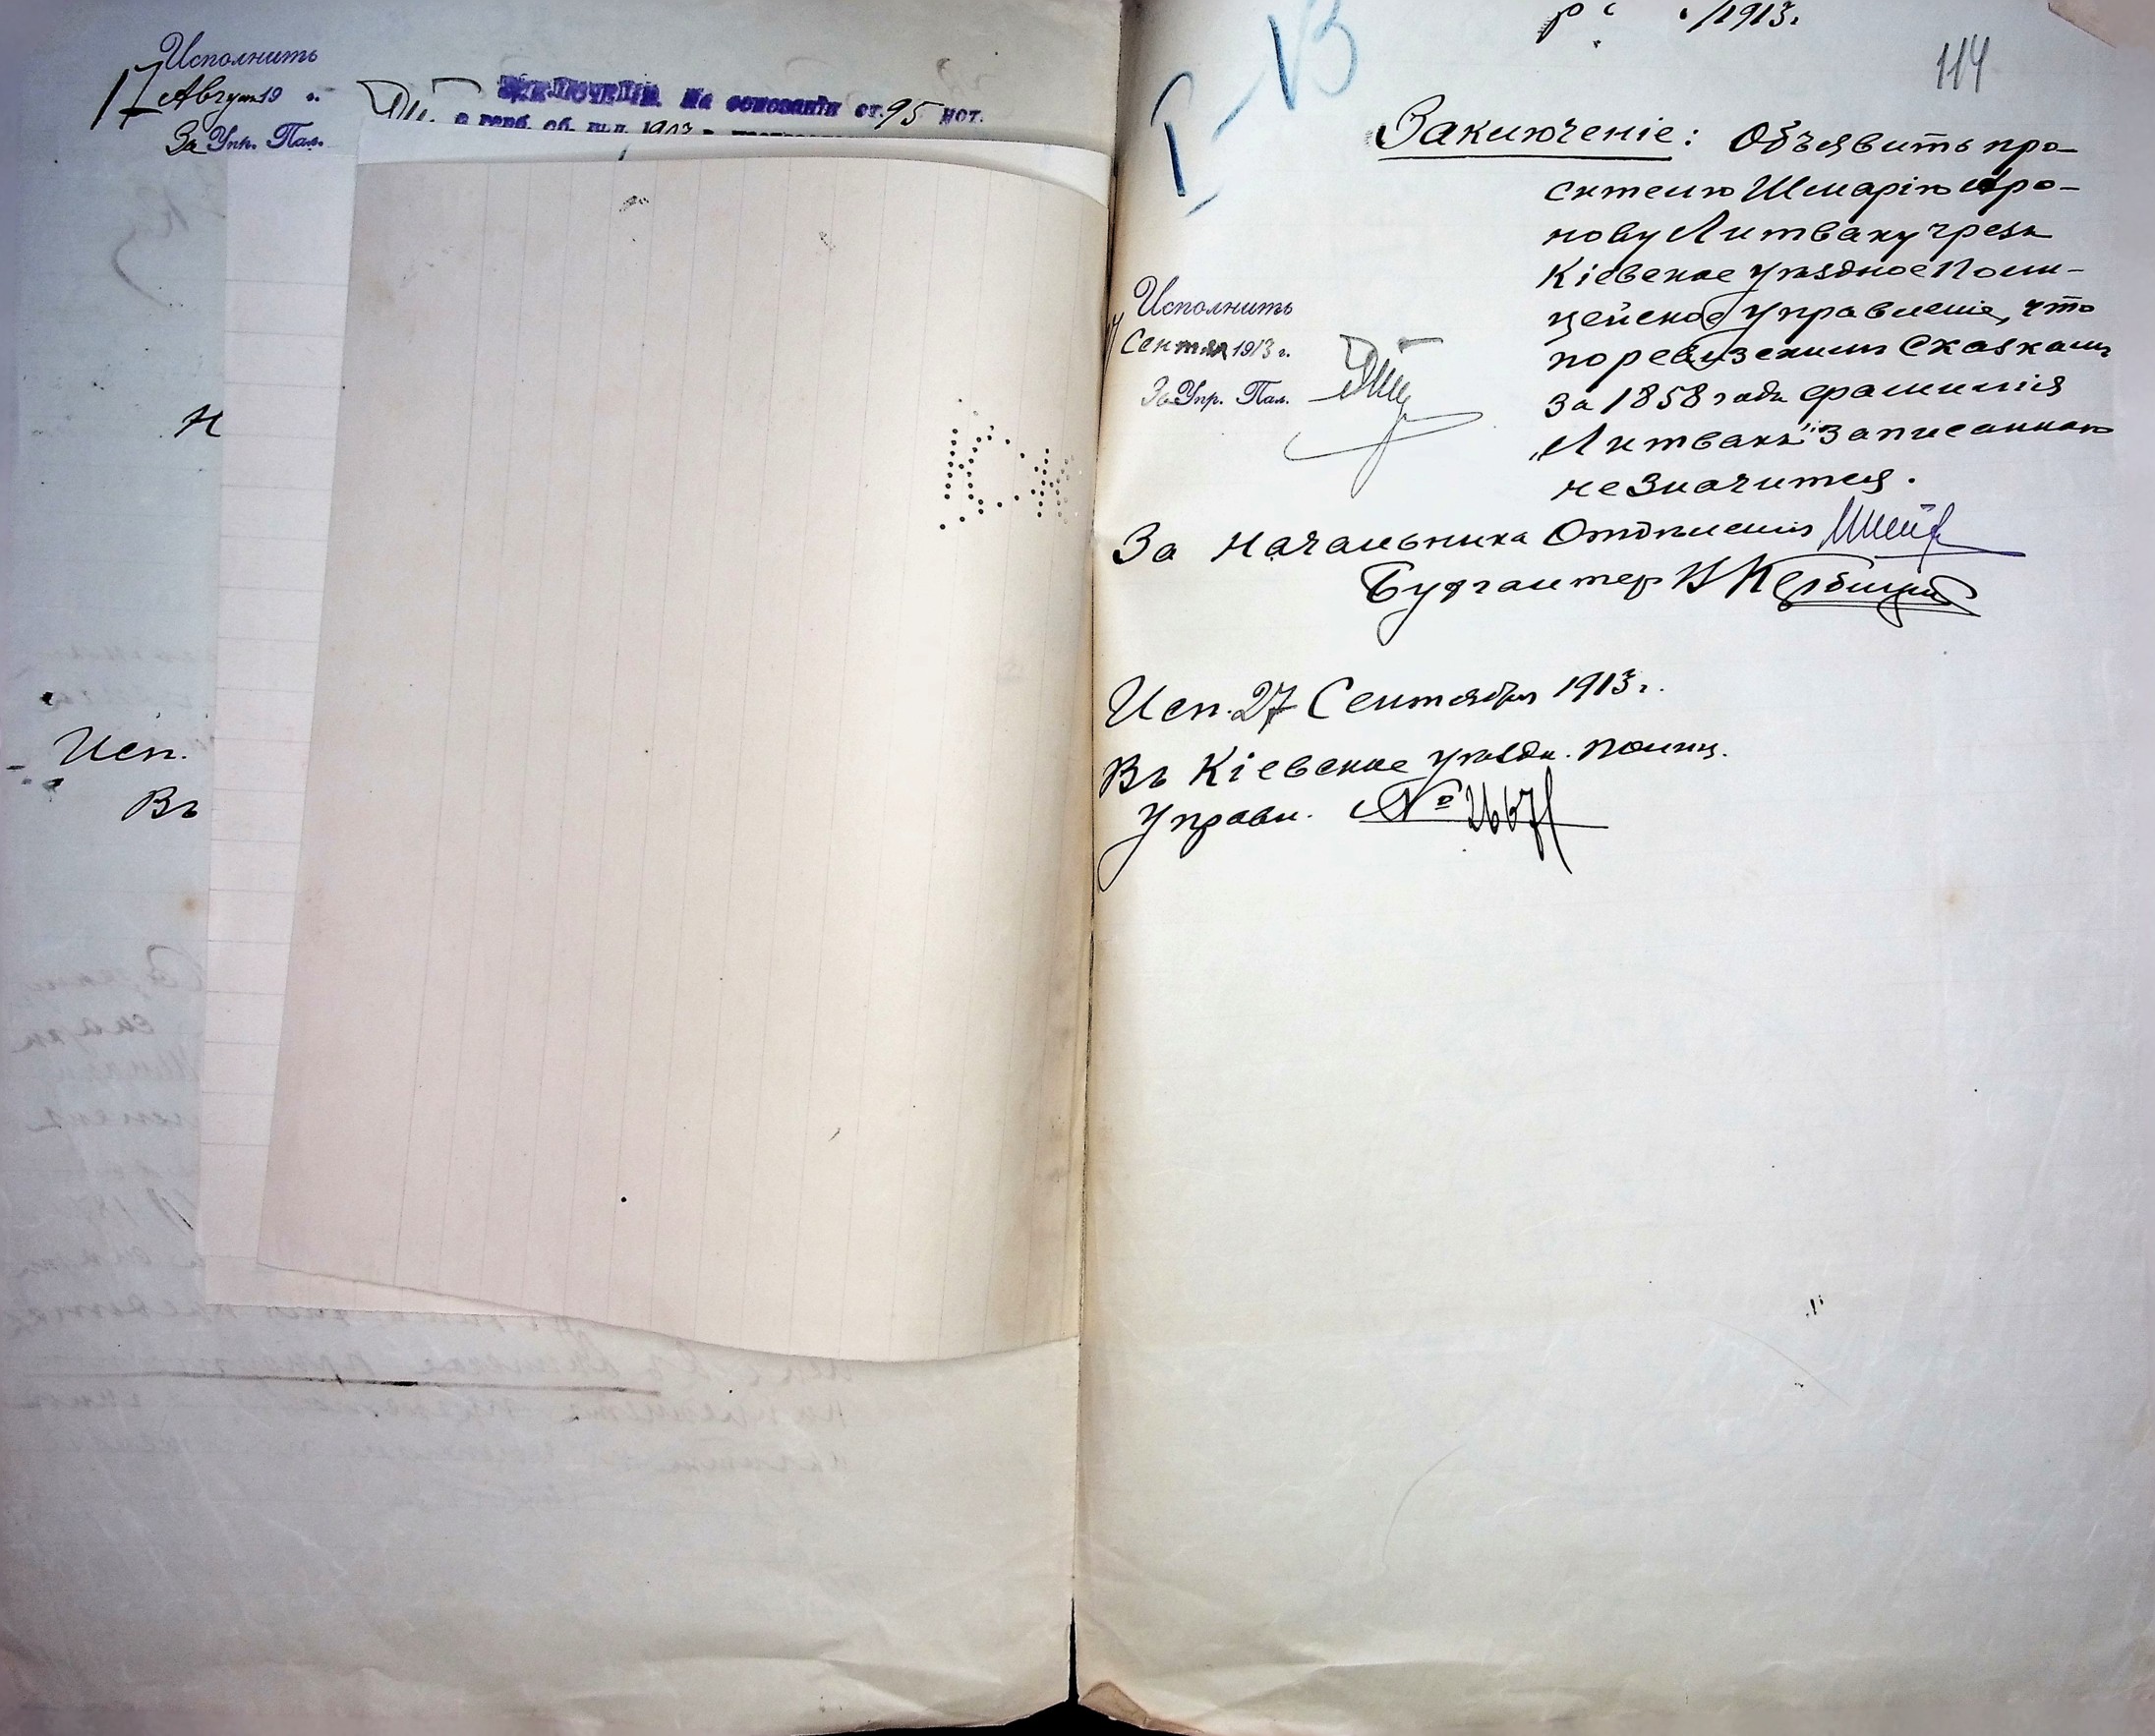 Исполнить
17 Август 19 г.
За Упр. Пал.
На основаніи ст. 95 уст.
о герб. сб. изд. 1903 г.
Н
Исп.
Въ
/1913 г.
114
I-13
Заключеніе: Объявить про-
сителю Шмарію Аро-
нову Литваку чрезъ
Кіевское уѣздное Поли-
цейское Управленіе, что
по ревизскимъ сказкамъ
за 1858 годъ фамилія
„Литвакъ“ записанною
не значится.
Исполнить
17 Сентяб 1913 г.
За Упр. Пал.
За Начальника Отдѣленія
Бухгалтер
Исп. 27 Сентября 1913 г.
Въ Кіевское уѣздн. полиц.
Управл. №